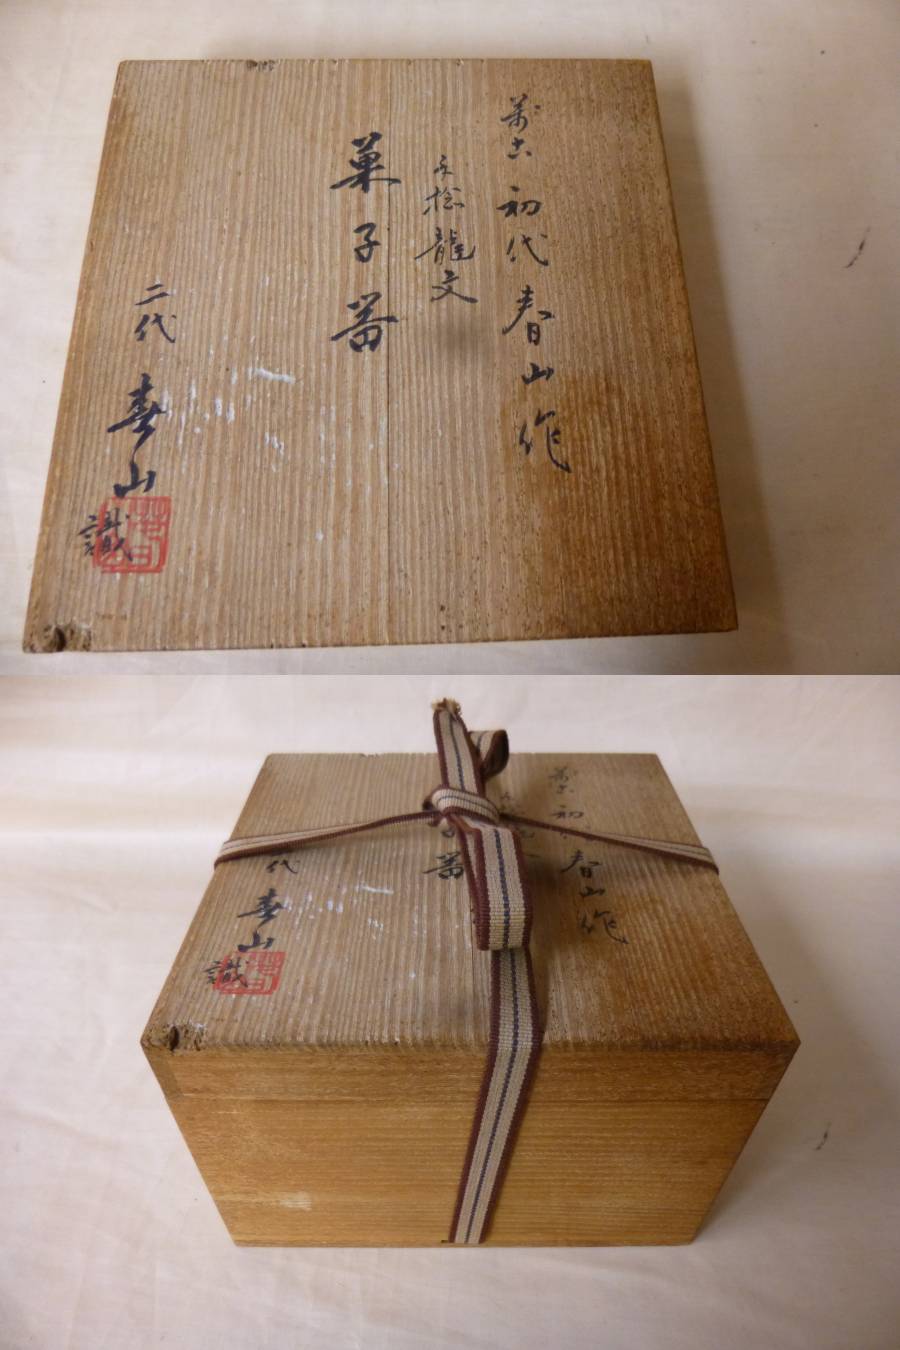 萬古 初代 春山作
手捻 龍文
菓子器
二代 春山
識
初 春山作
代 春山
識